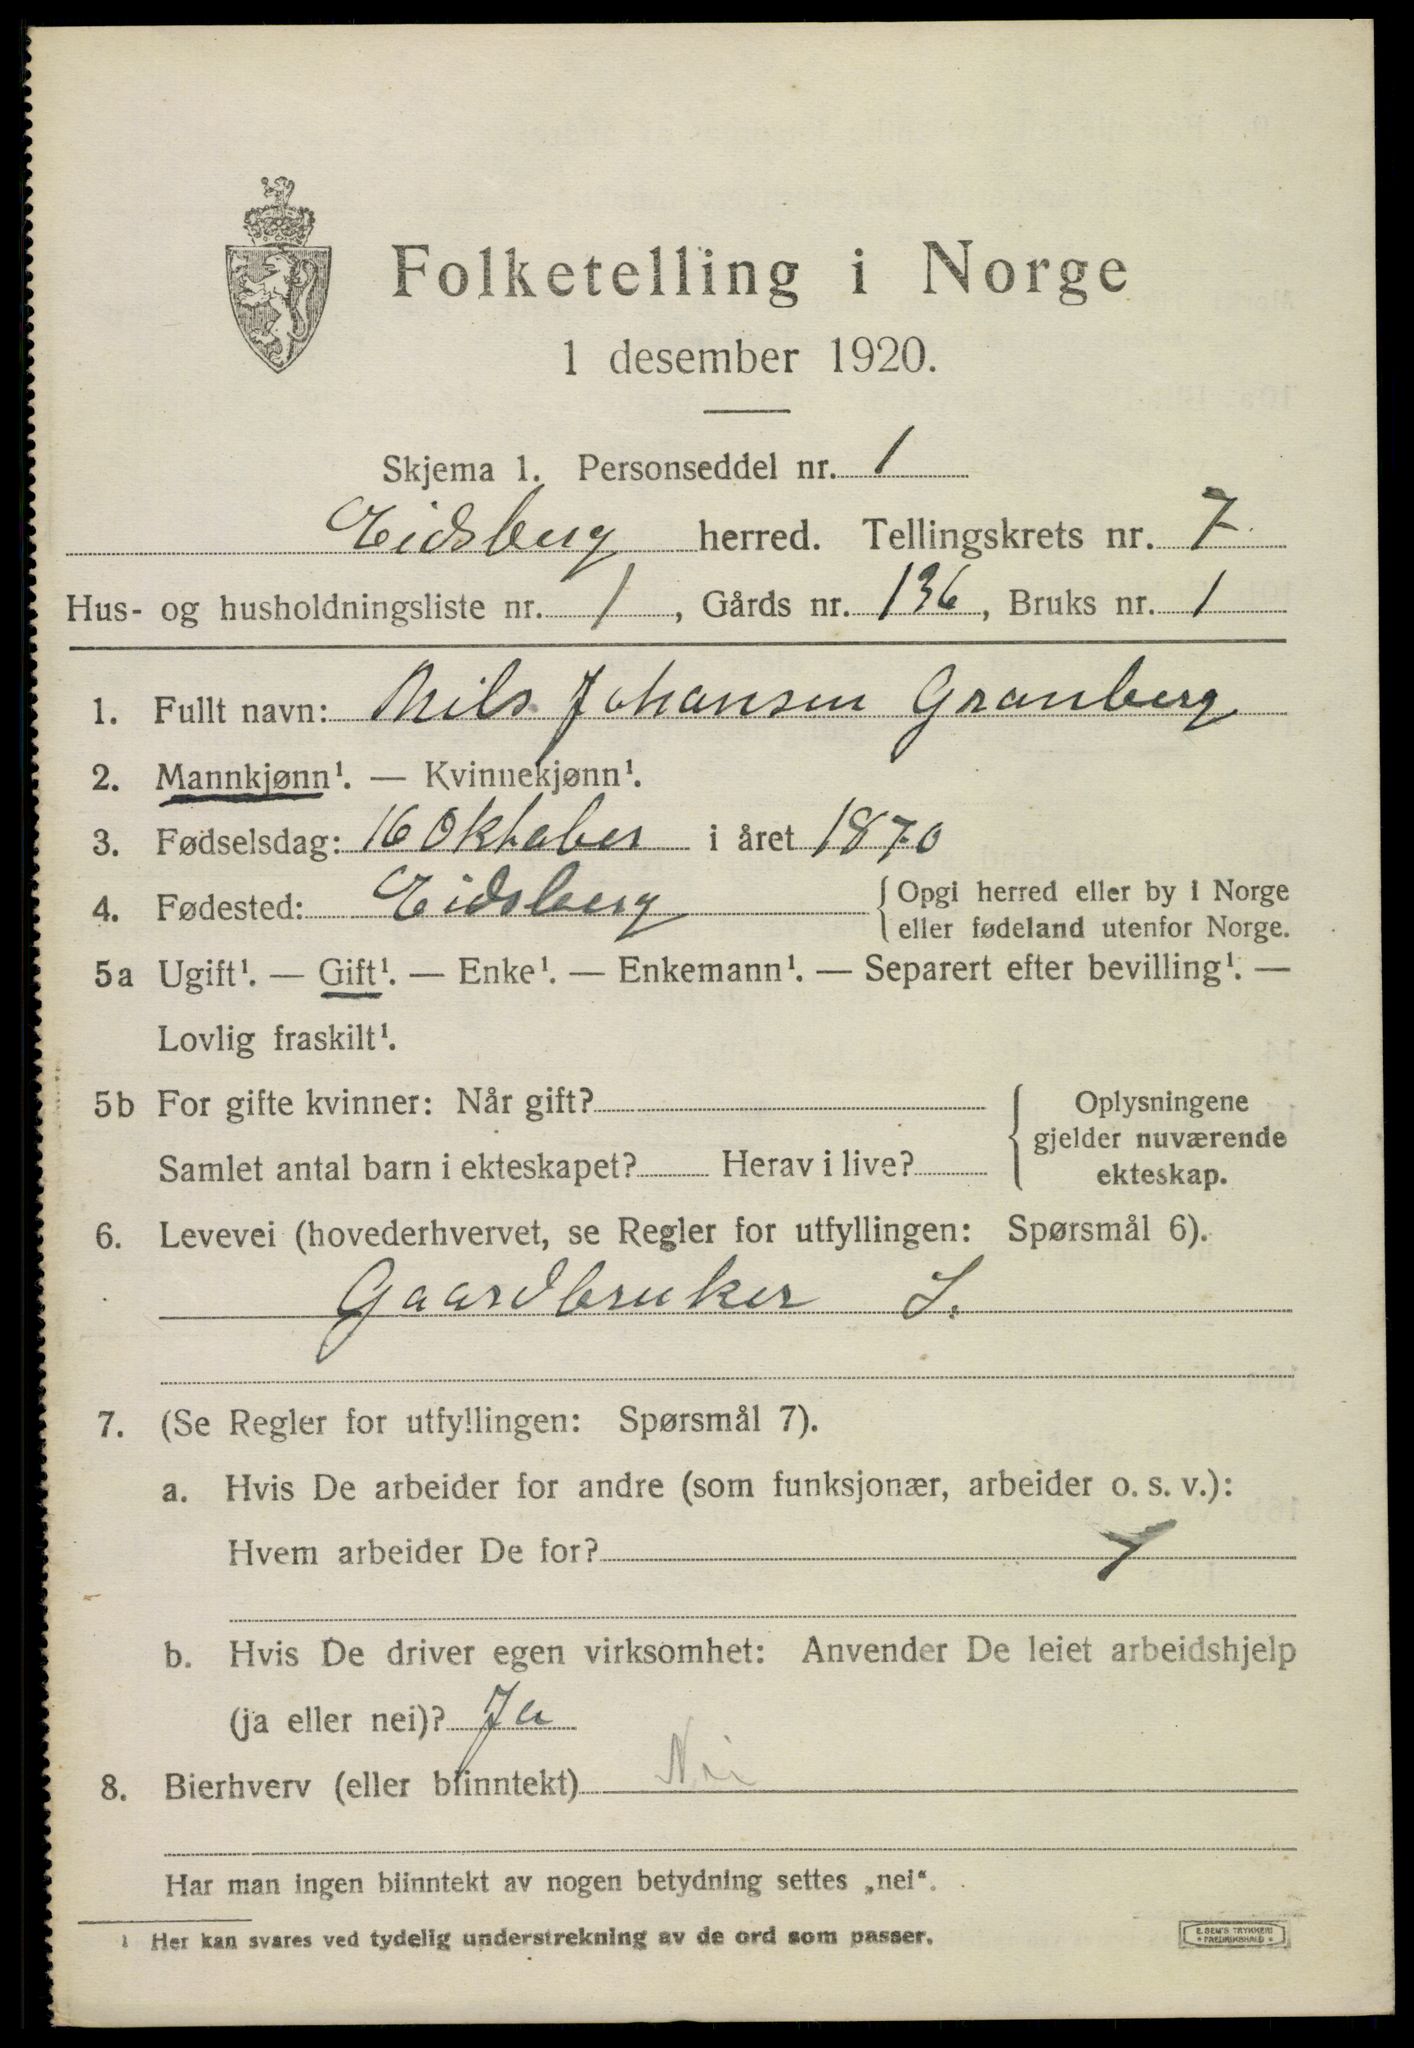 Folketelling i Norge
1 desember 1920.
Skjema 1. Personseddel nr. 1
Eidsberg herred. Tellingskrets nr. 7
Hus- og husholdningsliste nr. 1, Gårds nr. 136, Bruks nr. 1
1. Fullt navn: Nils Johansen Granberg
2. Mannkjønn¹. — Kvinnekjønn¹.
3. Fødselsdag: 16 Oktober i året 1870
4. Fødested: Eidsberg {Opgi herred eller by i Norge
eller fødeland utenfor Norge.
5a Ugift¹. — Gift¹. — Enke¹. — Enkemann¹. — Separert efter bevilling¹. —
Lovlig fraskilt¹.
5b For gifte kvinner: Når gift?
Samlet antal barn i ekteskapet? Herav i live?
Oplysningene
gjelder nuværende
ekteskap.
6. Levevei (hovederhvervet, se Regler for utfyllingen: Spørsmål 6).
Gaardbruker S.
7. (Se Regler for utfyllingen: Spørsmål 7).
a. Hvis De arbeider for andre (som funksjonær, arbeider o. s. v.):
Hvem arbeider De for?
b. Hvis De driver egen virksomhet: Anvender De leiet arbeidshjelp
(ja eller nei)? Ja
8. Bierhverv (eller biinntekt) Nei
Har man ingen biinntekt av nogen betydning settes „nei“.
1 Her kan svares ved tydelig understrekning av de ord som passer.
E. SEM'S TRYKKERI
* FREDRIKSHALD *